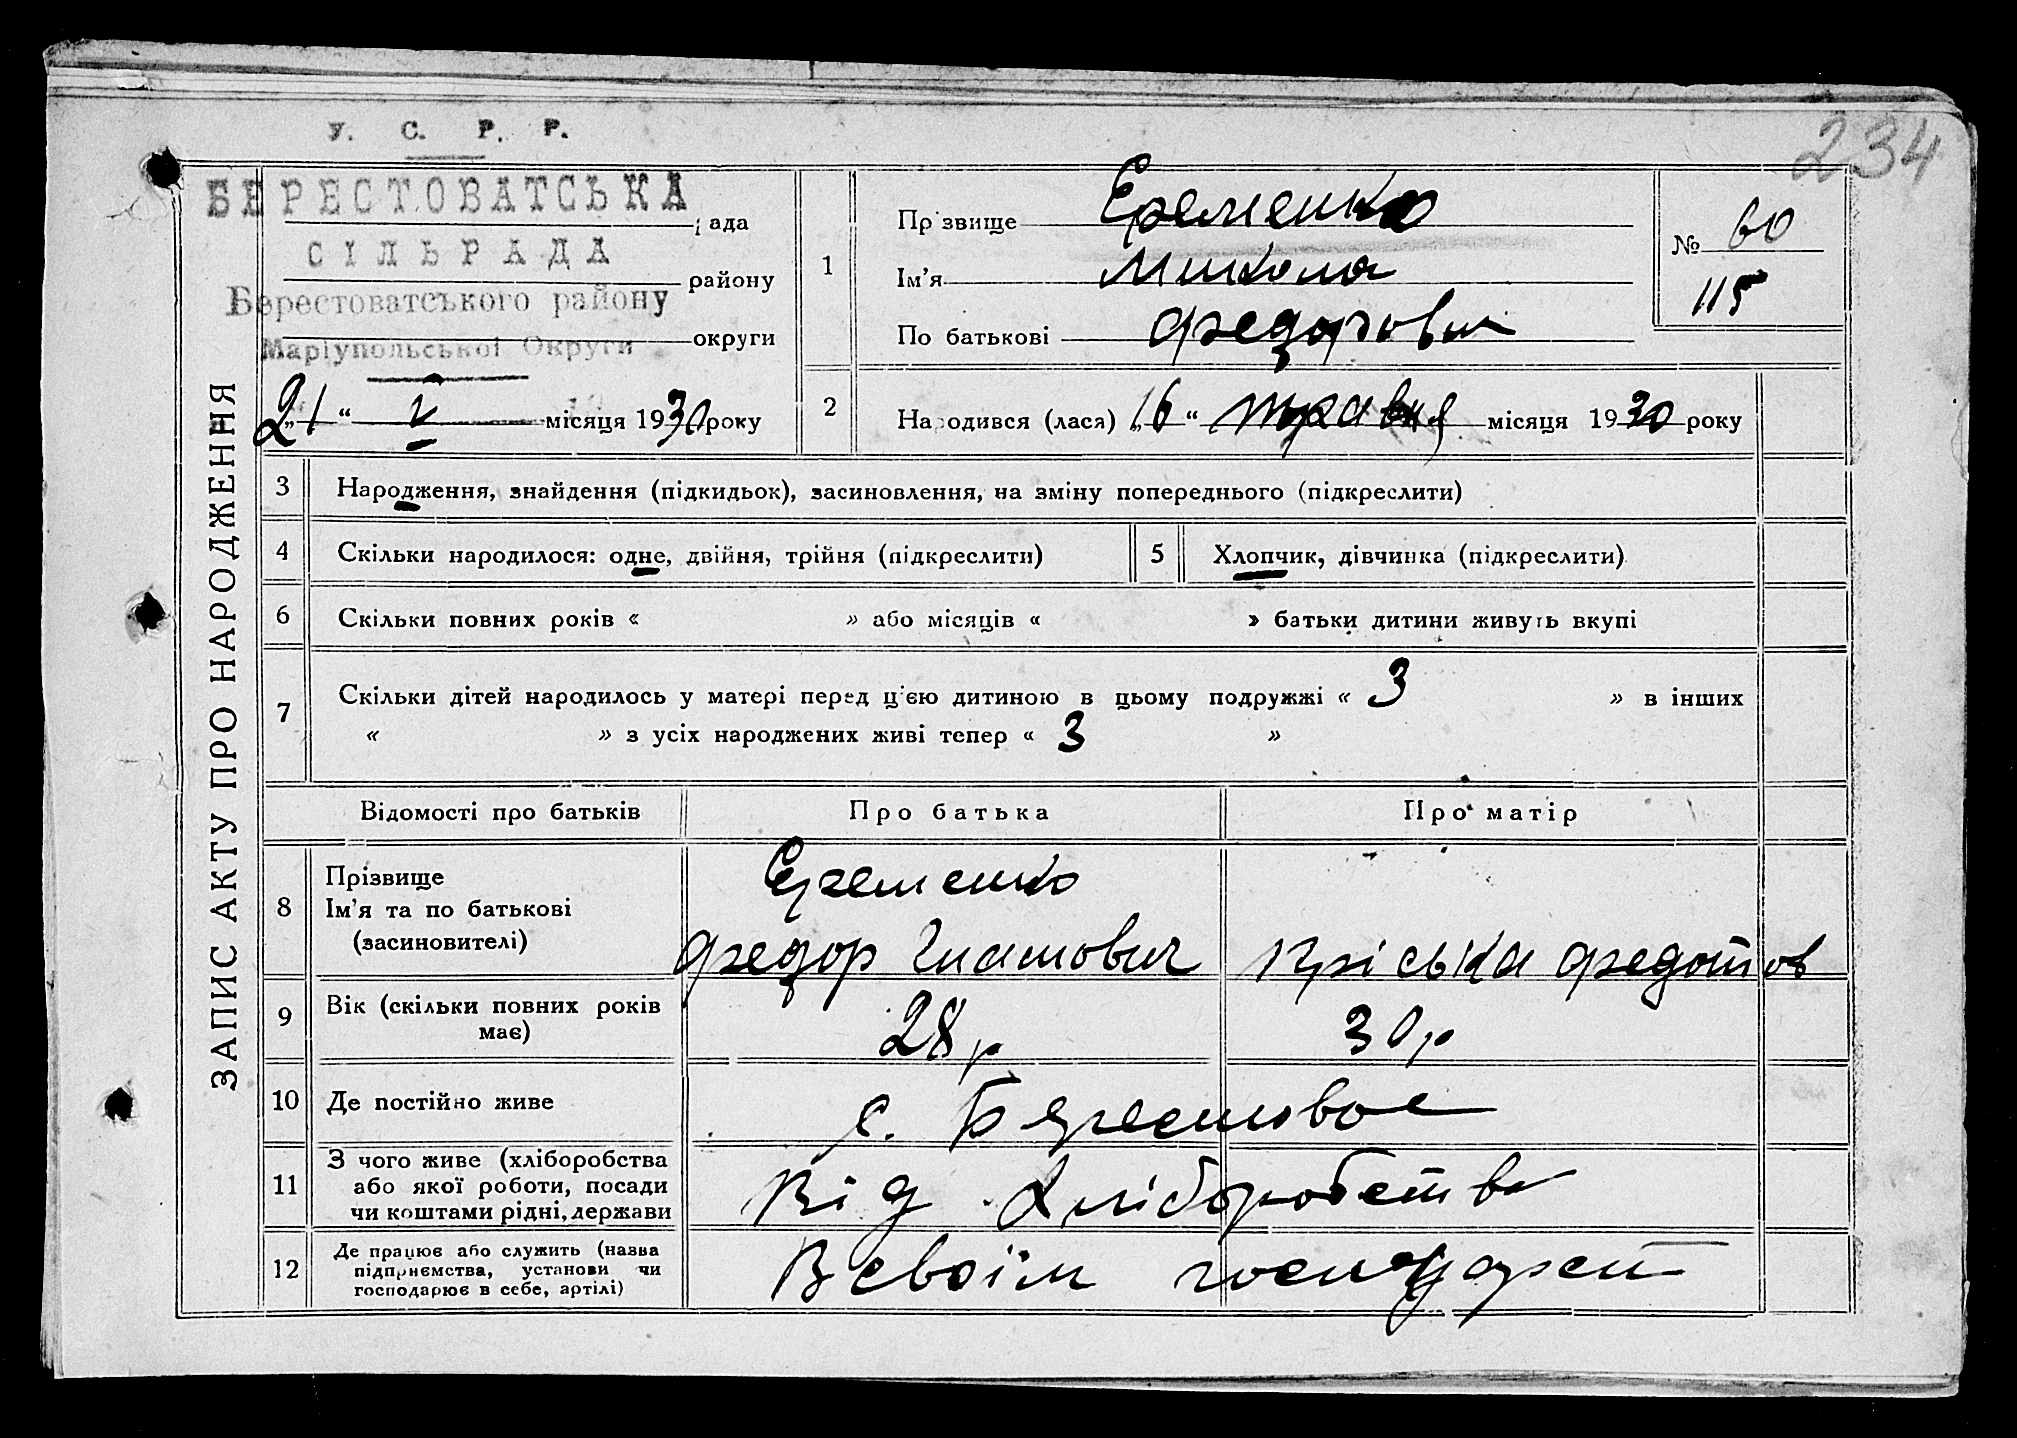 234
У. С. Р. Р.
БЕРЕСТОВАТСЬКА рада
СІЛЬРАДА району
Берестоватського району
Маріупольської Округи округи
„21“ V місяця 1930 року
ЗАПИС АКТУ ПРО НАРОДЖЕННЯ
1 Прізвище Еременко
Ім'я Микола
По батькові Федорович
№ 60
115
2 Народився (лася) „16“ травня місяця 1930 року
3 Народження, знайдення (підкидьок), засиновлення, на зміну попереднього (підкреслити)
4 Скільки народилося: одне, двійня, трійня (підкреслити) 5 Хлопчик, дівчинка (підкреслити)
6 Скільки повних років « » або місяців « » батьки дитини живуть вкупі
7 Скільки дітей народилось у матері перед цією дитиною в цьому подружжі « 3 » в інших
« » з усіх народжених живі тепер « 3 »
Відомості про батьків Про батька Про матір
8 Прізвище Еременко
Ім'я та по батькові
(засиновителі) Федор Федотов
9 Вік (скільки повних років 28 р 30 р
має)
10 Де постійно живе с. Берестовое
11 З чого живе (хліборобства
або якої роботи, посади Від хліборобства
чи коштами рідні, держави
12 Де працює або служить (назва
підприємства, установи чи В своїм господарст
господарює в себе, артілі)